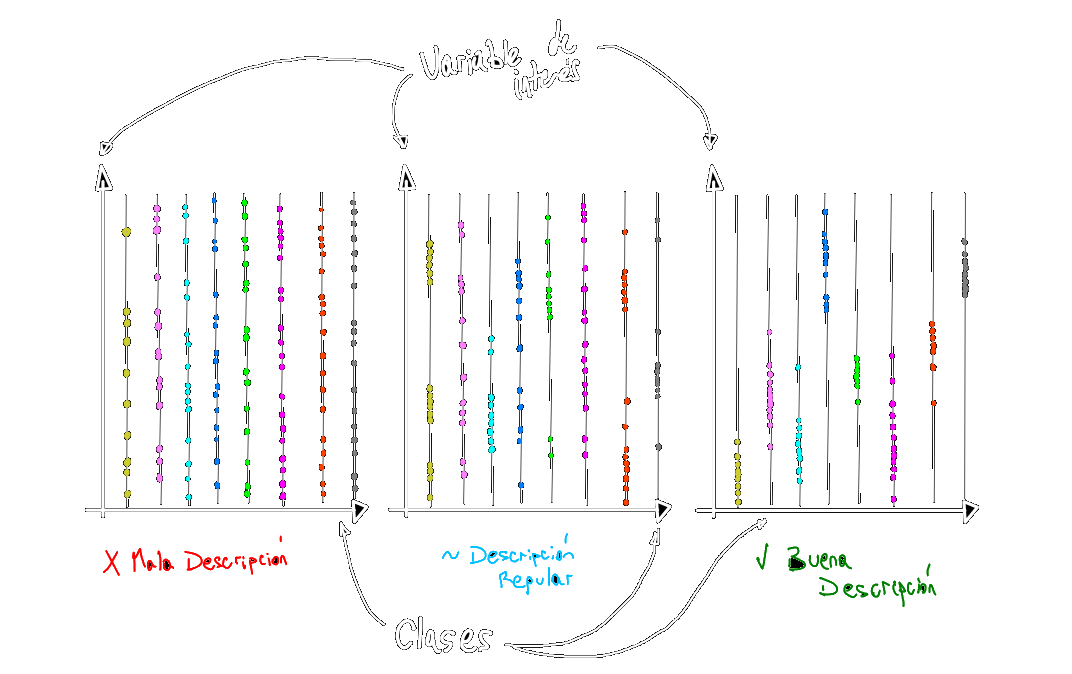 Variable de
interés
X Mala Descripción
~ Descripción
Regular
√ Buena
Descripción
Clases